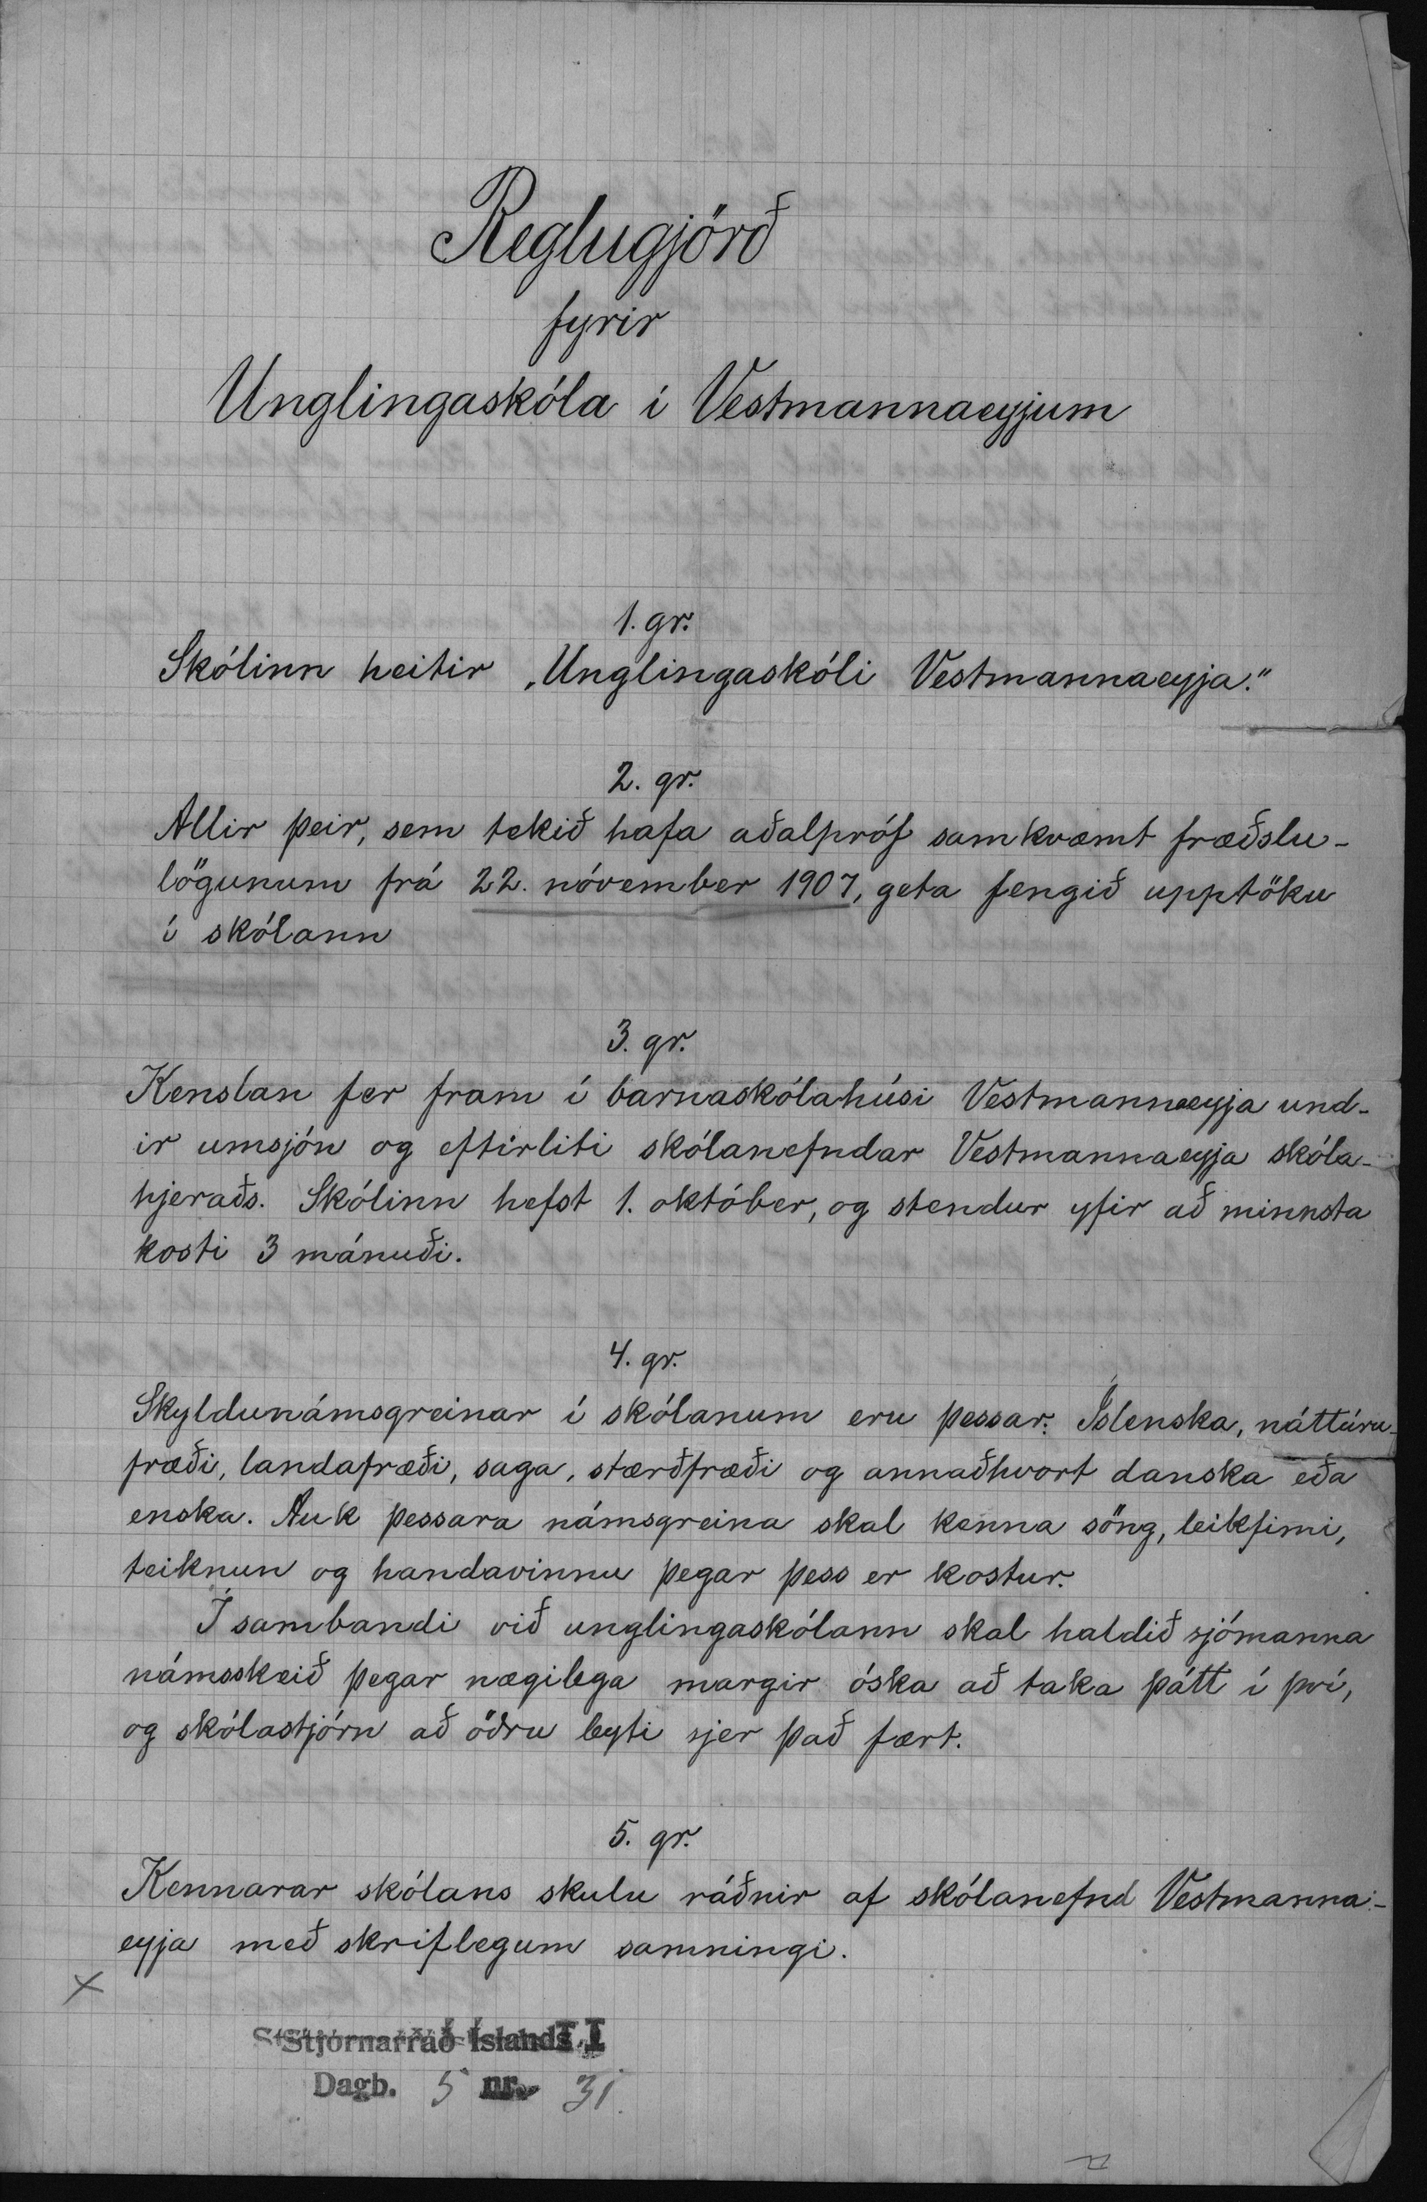 Reglugjörð
fyrir
Unglingaskóla í Vestmannaeyjum
1. gr.
Skólinn heitir „Unglingaskóli Vestmannaeyja."
2. gr.
Allir þeir, sem tekið hafa aðalpróf samkvæmt fræðslu-
lögunum frá 22. nóvember 1907, geta fengið upptöku
í skólann
3. gr.
Kenslan fer fram í barnaskólahúsi Vestmannaeyja und-
ir umsjón og eftirliti skólanefndar Vestmannaeyja skóla-
hjeraðs. Skólinn hefst 1. október, og stendur yfir að minnsta
kosti 3 mánuði.
4. gr.
Skyldunámsgreinar í skólanum eru þessar: Íslenska, náttúru-
fræði, landafræði, saga, stærðfræði og annaðhvort danska eða
enska. Auk þessara námsgreina skal kenna söng, leikfimi,
teiknun og handavinnu þegar þess er kostur.
Í sambandi við unglingaskólann skal haldið sjómanna
námsskeið þegar nægilega margir óska að taka þátt í því,
og skólastjórn að öðru leyti sjer það fært.
5. gr.
Kennarar skólans skulu ráðnir af skólanefnd Vestmanna-
eyja með skriflegum samningi.
x
Stjórnarráð Íslands I
Dagb. 5 nr. 31.